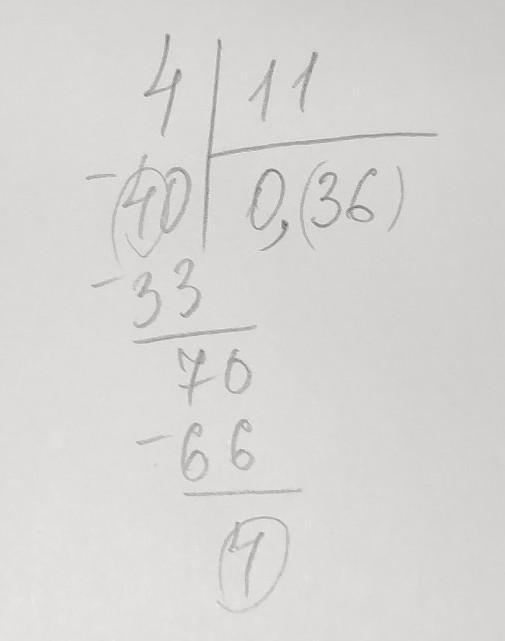 4 | 11
-40 | 0,(36)
-33
70
-66
4